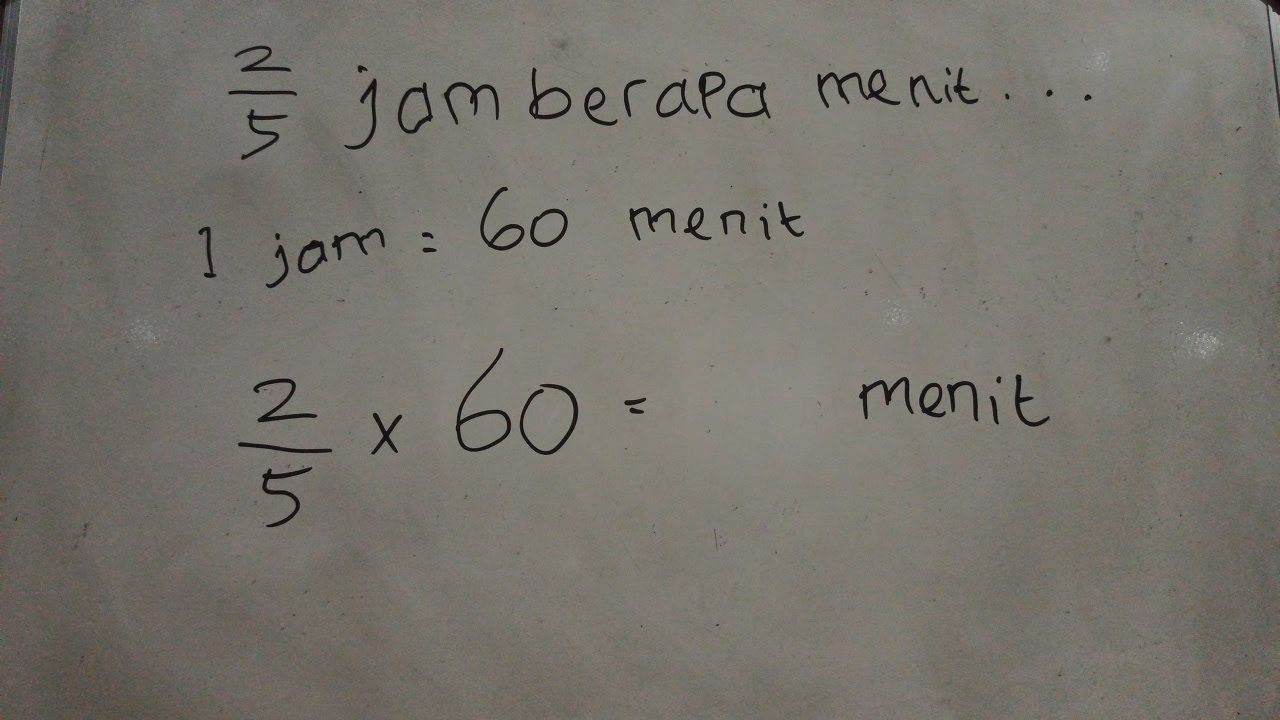 2/5 jam berapa menit...
1 jam = 60 menit
2/5 x 60 = menit